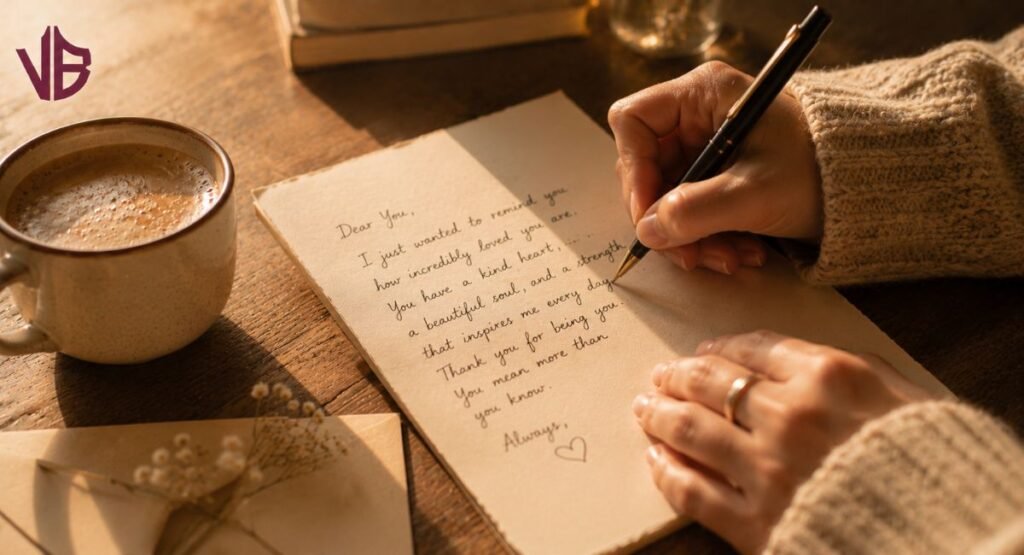 VB
Dear You,
I just wanted to remind you
how incredibly loved you are.
You have a kind heart, .. ... ..
a beautiful soul, and a strength
that inspires me every day.
Thank you for being you.
You mean more than
you know.
Always,